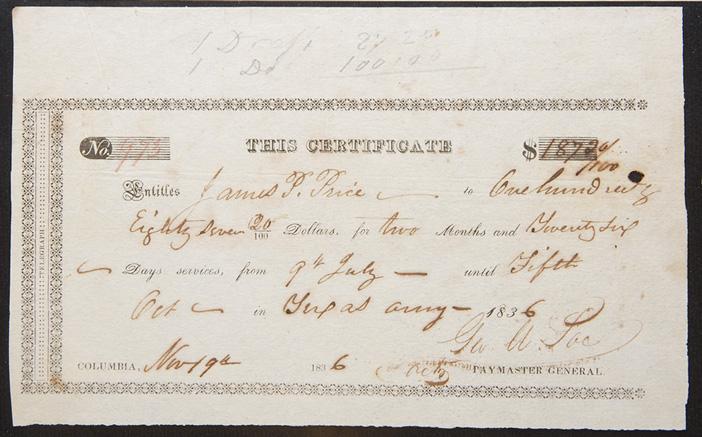 1 Draft 27 20
1 Do 100 00
No. 993
THIS CERTIFICATE
$ 187 20/100
Entitles James P. Price to One hundred &
Eighty Seven 20/100 Dollars, for two Months and Twenty six
Days services, from 9th July until Fifth
Oct in Texas army 1836
Geo. W. Poe
COLUMBIA, Nov 19th 1836 PAYMASTER GENERAL.
TELEGRAPH